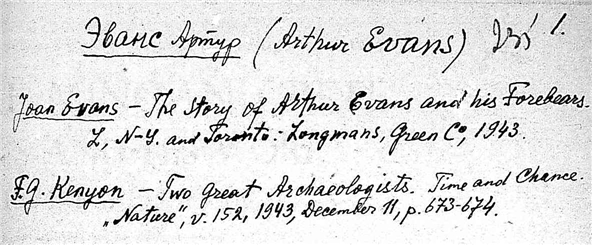 Эванс Артур (Arthur Evans) 1.
Joan Evans – The Story of Arthur Evans and his Forebears.
L, N-Y. and Toronto: Longmans, Green C°, 1943.
F.G. Kenyon – Two Great Archaeologists. Time and Chance.
„Nature", v. 152, 1943, December 11, p. 673-674.